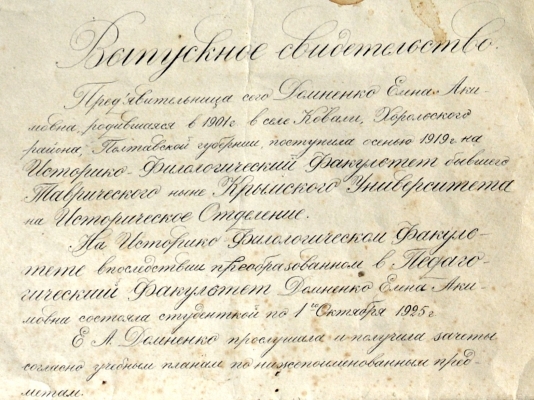 Выпускное свидетельство.
Пред'явительница сего Домненко Елена Аки-
мовна, родившаяся в 1901 г. в селе Ковали, Хорольского
района, Полтавской губернии, поступила осенью 1919 г. на
Историко-Филологический Факультет бывшего
Таврического ныне Крымского Университета
на Историческое Отделение.
На Историко Филологическом Факуль-
тете впоследствии преобразованном в Педаго-
гический Факультет Домненко Елена Аки-
мовна состояла студенткой по 1го Октября 1925 г
Е. А. Домненко прослушала и получила зачеты
согласно учебным планам по нижепоименованным пред-
метам.